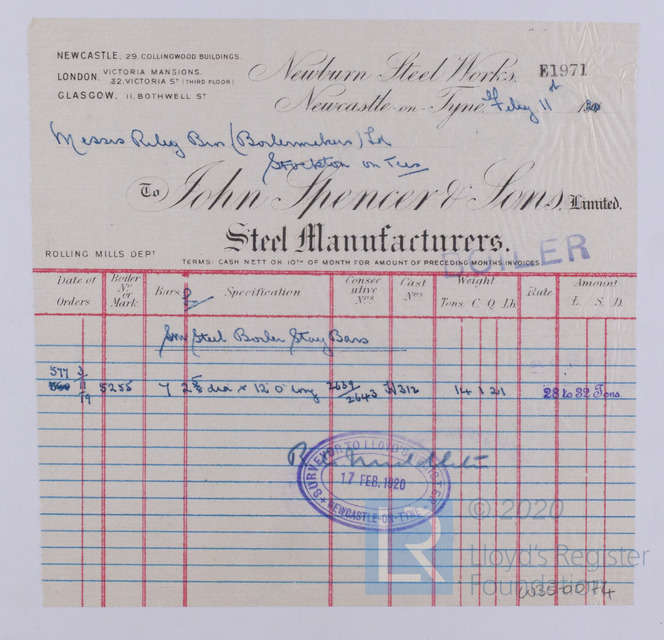 NEWCASTLE, 29, COLLINGWOOD BUILDINGS.
LONDON, VICTORIA MANSIONS,
32, VICTORIA ST (THIRD FLOOR)
GLASGOW, 11, BOTHWELL ST
Newburn Steel Works,
E1971
Newcastle-on-Tyne, Feby 11th
Messrs Riley Bros (Boilermakers) Ld
Stockton on Tees
To John Spencer & Sons, Limited.
Steel Manufacturers.
ROLLING MILLS DEPT
TERMS: CASH NETT ON 10TH OF MONTH FOR AMOUNT OF PRECEDING MONTHS INVOICES
BOILER
Date of Orders
Boiler No or Mark
Bars
Specification
Consecutive Nos
Cast Nos
Weight
Tons. C. Q. Lb.
Rate
Amount
£. S. D.
Sm Steel Boiler Stay Bars
577 3/11/19 5255 7 2⅝ dia × 12'0" long 2639/2643 14 1 21 28 to 32 Tons
SURVEYOR TO LLOYD'S REGISTER
17 FEB. 1920
NEWCASTLE-ON-TYNE
LR
© 2020
Lloyd's Register
Foundation